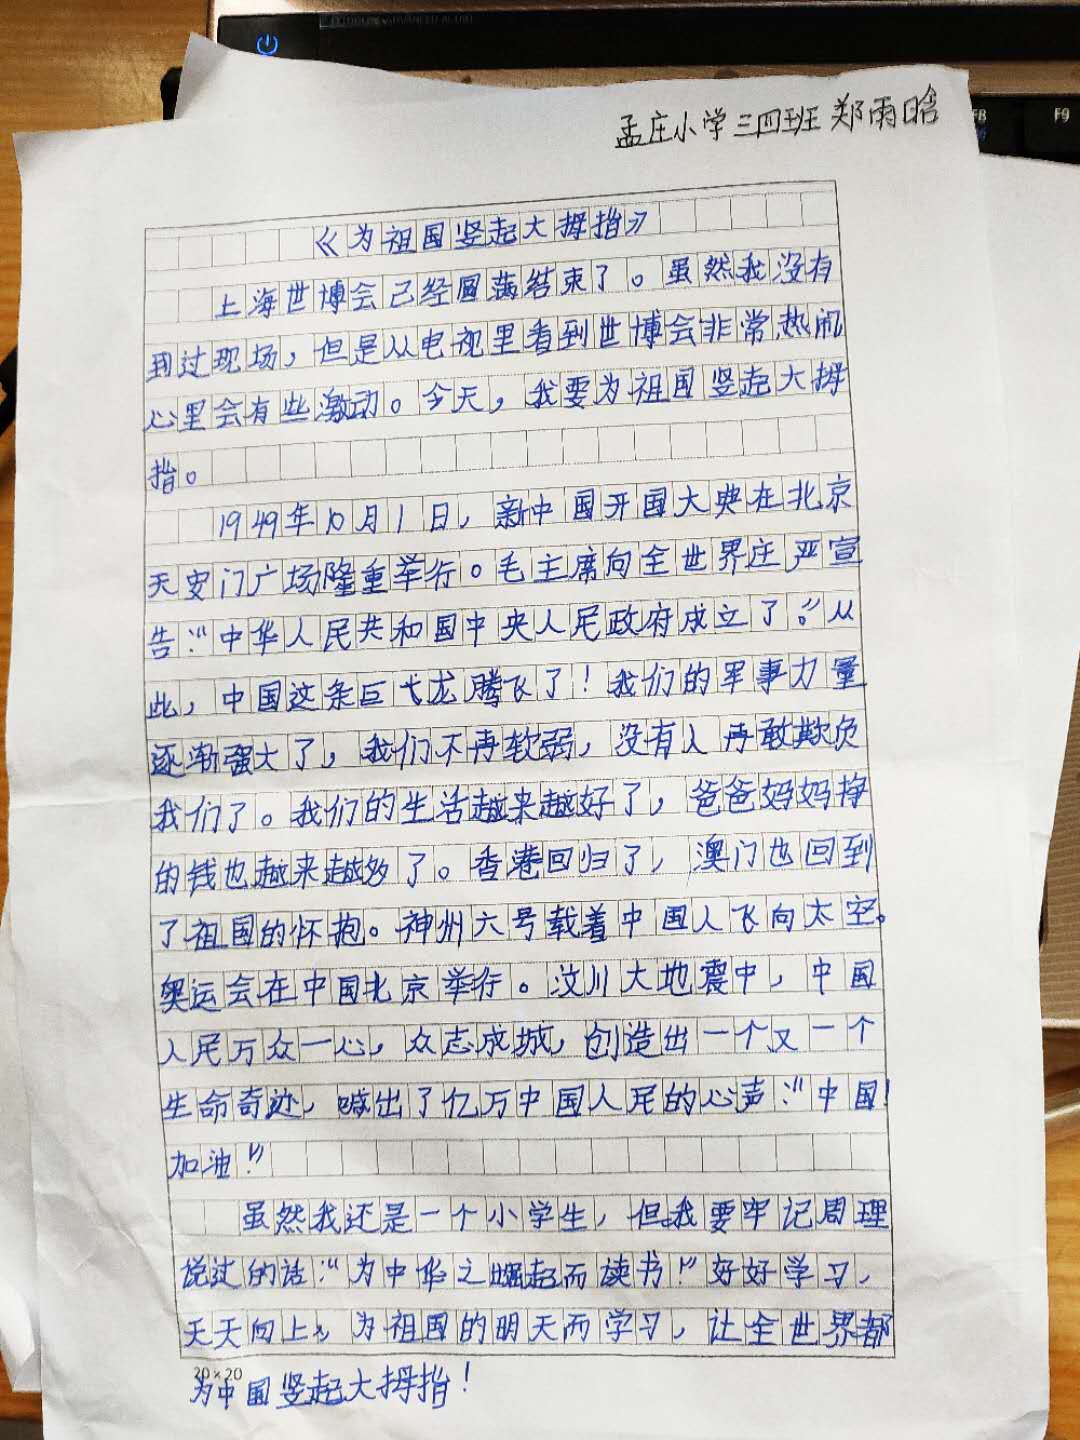 孟庄小学三四班 郑雨晗
《为祖国竖起大拇指》
上海世博会已经圆满结束了。虽然我没有
到过现场，但是从电视里看到世博会非常热闹
心里会有些激动。今天，我要为祖国竖起大拇
指。
1949年10月1日，新中国开国大典在北京
天安门广场隆重举行。毛主席向全世界庄严宣
告：“中华人民共和国中央人民政府成立了。”从
此，中国这条巨弋龙腾飞了！我们的军事力量
逐渐强大了，我们不再软弱，没有人再敢欺负
我们了。我们的生活越来越好了，爸爸妈妈挣
的钱也越来越多了。香港回归了，澳门也回到
了祖国的怀抱。神州六号载着中国人飞向太空。
奥运会在中国北京举行。汶川大地震中，中国
人民万众一心，众志成城，创造出一个又一个
生命奇迹，喊出了亿万中国人民的心声：“中国！
加油！”
虽然我还是一个小学生，但我要牢记周理
说过的话：“为中华之崛起而读书！”好好学习，
天天向上，为祖国的明天而学习，让全世界都
20×20
为中国竖起大拇指！
F8
F9